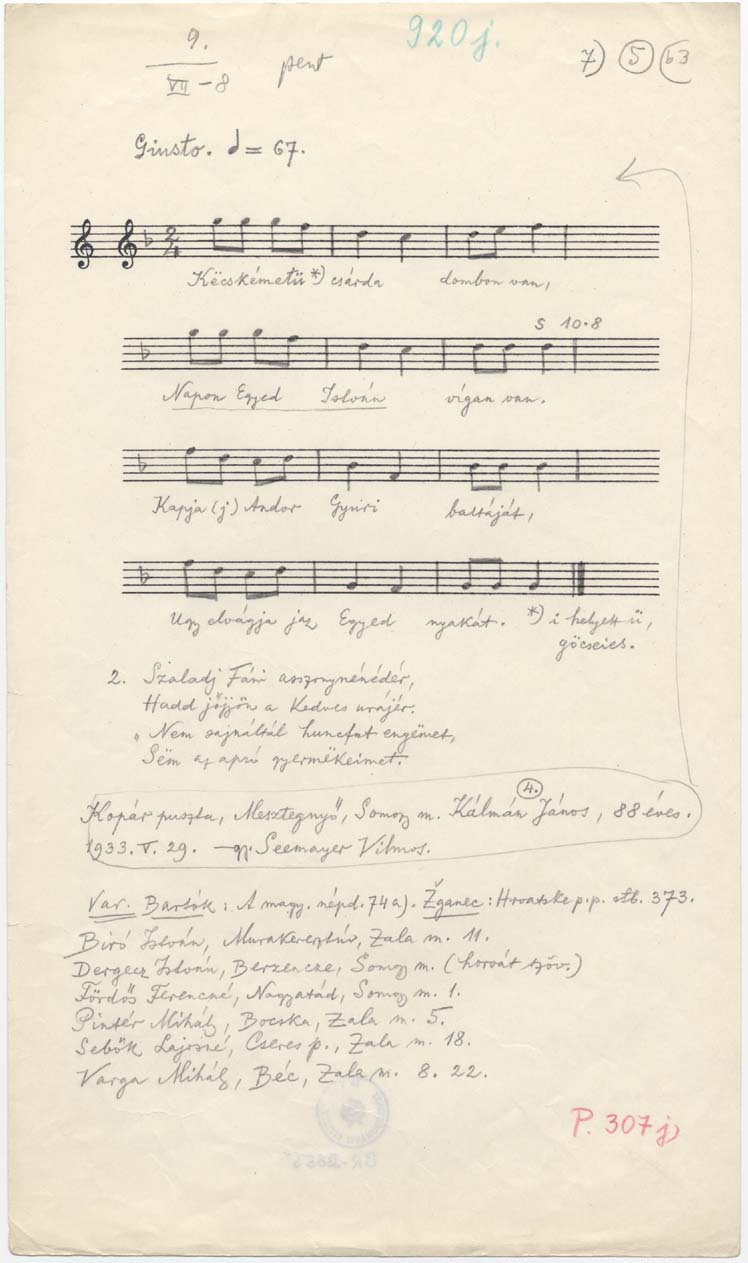 9.
VII-8
pent
920 j.
7) 5 b3
Giusto. = 67.
Këcskémetü *) csárda dombon van,
S 10.8
Napon Egyed István vígan van.
Kapja (j) Andor Gyuri baltáját,
Ugy elvágja jaz Egyed nyakát. *) i helyett ü,
göcseies.
2. Szaladj Fáni asszonynénédér,
Hadd jőjjön a Kedves urájér.
„Nem sajnáltál huncfut engëmet,
Sëm az apró gyermëkeimet.
4.
Kopár puszta, Mesztegnyő, Somogy m. Kálmán János, 88 éves.
1933. V. 29. Seemayer Vilmos.
Var. Bartók: A magy. népd. 74a). Žganec: Hrvatske p.p. stb. 373.
Biró István, Murakeresztúr, Zala m. 11.
Dergecz István, Berzencze, Somogy m. (horvát szöv.)
Fördős Ferencné, Nagyatád, Somogy m. 1.
Pintér Mihály, Bocska, Zala m. 5.
Sebők Lajosné, Cseres p., Zala m. 18.
Varga Mihály, Béc, Zala m. 8. 22.
P. 307 j)